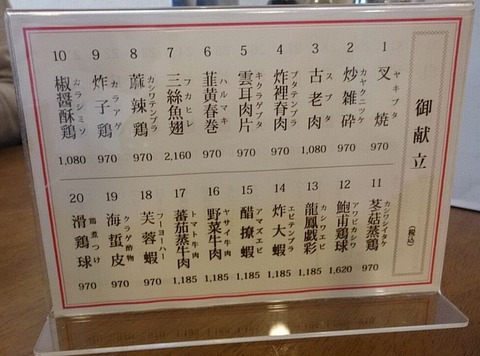 御献立
(税込)
1 叉焼 ヤキブタ 970
2 炒雑砕 カヤクニツケ 970
3 古老肉 スブタ 1,080
4 炸裡脊肉 ブタテンプラ 970
5 雲耳肉片 キクラゲブタ 970
6 韮黄春巻 ハルマキ 970
7 三絲魚翅 フカヒレ 2,160
8 蔴辣鶏 カシワテンプラ 970
9 炸子鶏 カラアゲ 970
10 椒醤酥鶏 カラシミソ 1,080
11 茎菇蒸鶏 カシワシイタケ 970
12 鮑甫鶏球 アワビカシワ 1,620
13 龍鳳戯彩 カシワエビ 1,185
14 炸大蝦 エビテンプラ 1,185
15 醋撩蝦 アマズエビ 1,185
16 野菜牛肉 ヤサイ牛肉 1,185
17 蕃茄蒸牛肉 トマト牛肉 1,185
18 芙蓉蝦 フーヨーハー 970
19 海蜇皮 クラゲ酢物 970
20 滑鶏球 鶏煮つけ 970